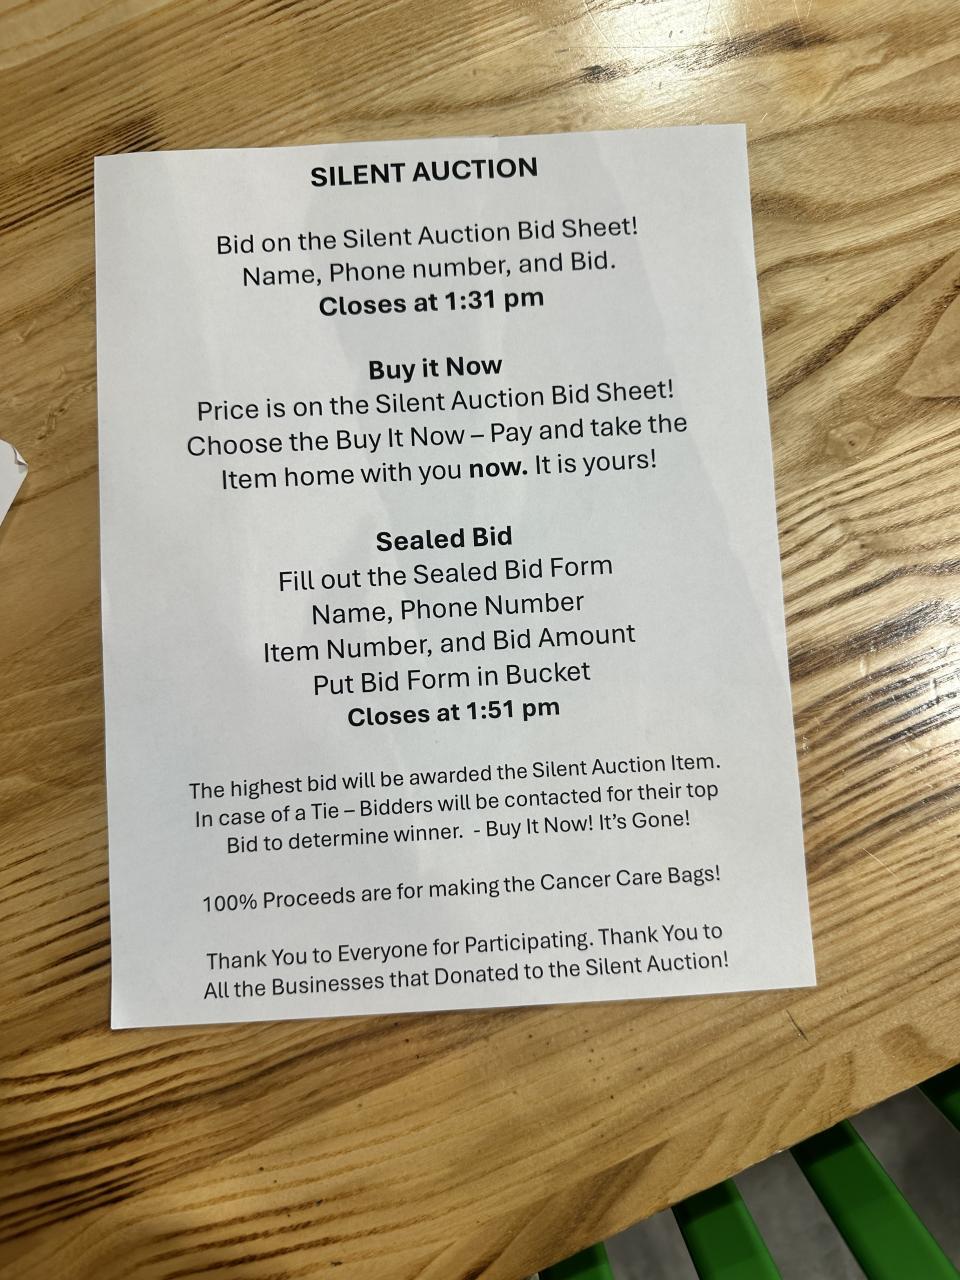 SILENT AUCTION
Bid on the Silent Auction Bid Sheet!
Name, Phone number, and Bid.
Closes at 1:31 pm
Buy it Now
Price is on the Silent Auction Bid Sheet!
Choose the Buy It Now – Pay and take the
Item home with you now. It is yours!
Sealed Bid
Fill out the Sealed Bid Form
Name, Phone Number
Item Number, and Bid Amount
Put Bid Form in Bucket
Closes at 1:51 pm
The highest bid will be awarded the Silent Auction Item.
In case of a Tie – Bidders will be contacted for their top
Bid to determine winner.  - Buy It Now! It’s Gone!
100% Proceeds are for making the Cancer Care Bags!
Thank You to Everyone for Participating. Thank You to
All the Businesses that Donated to the Silent Auction!